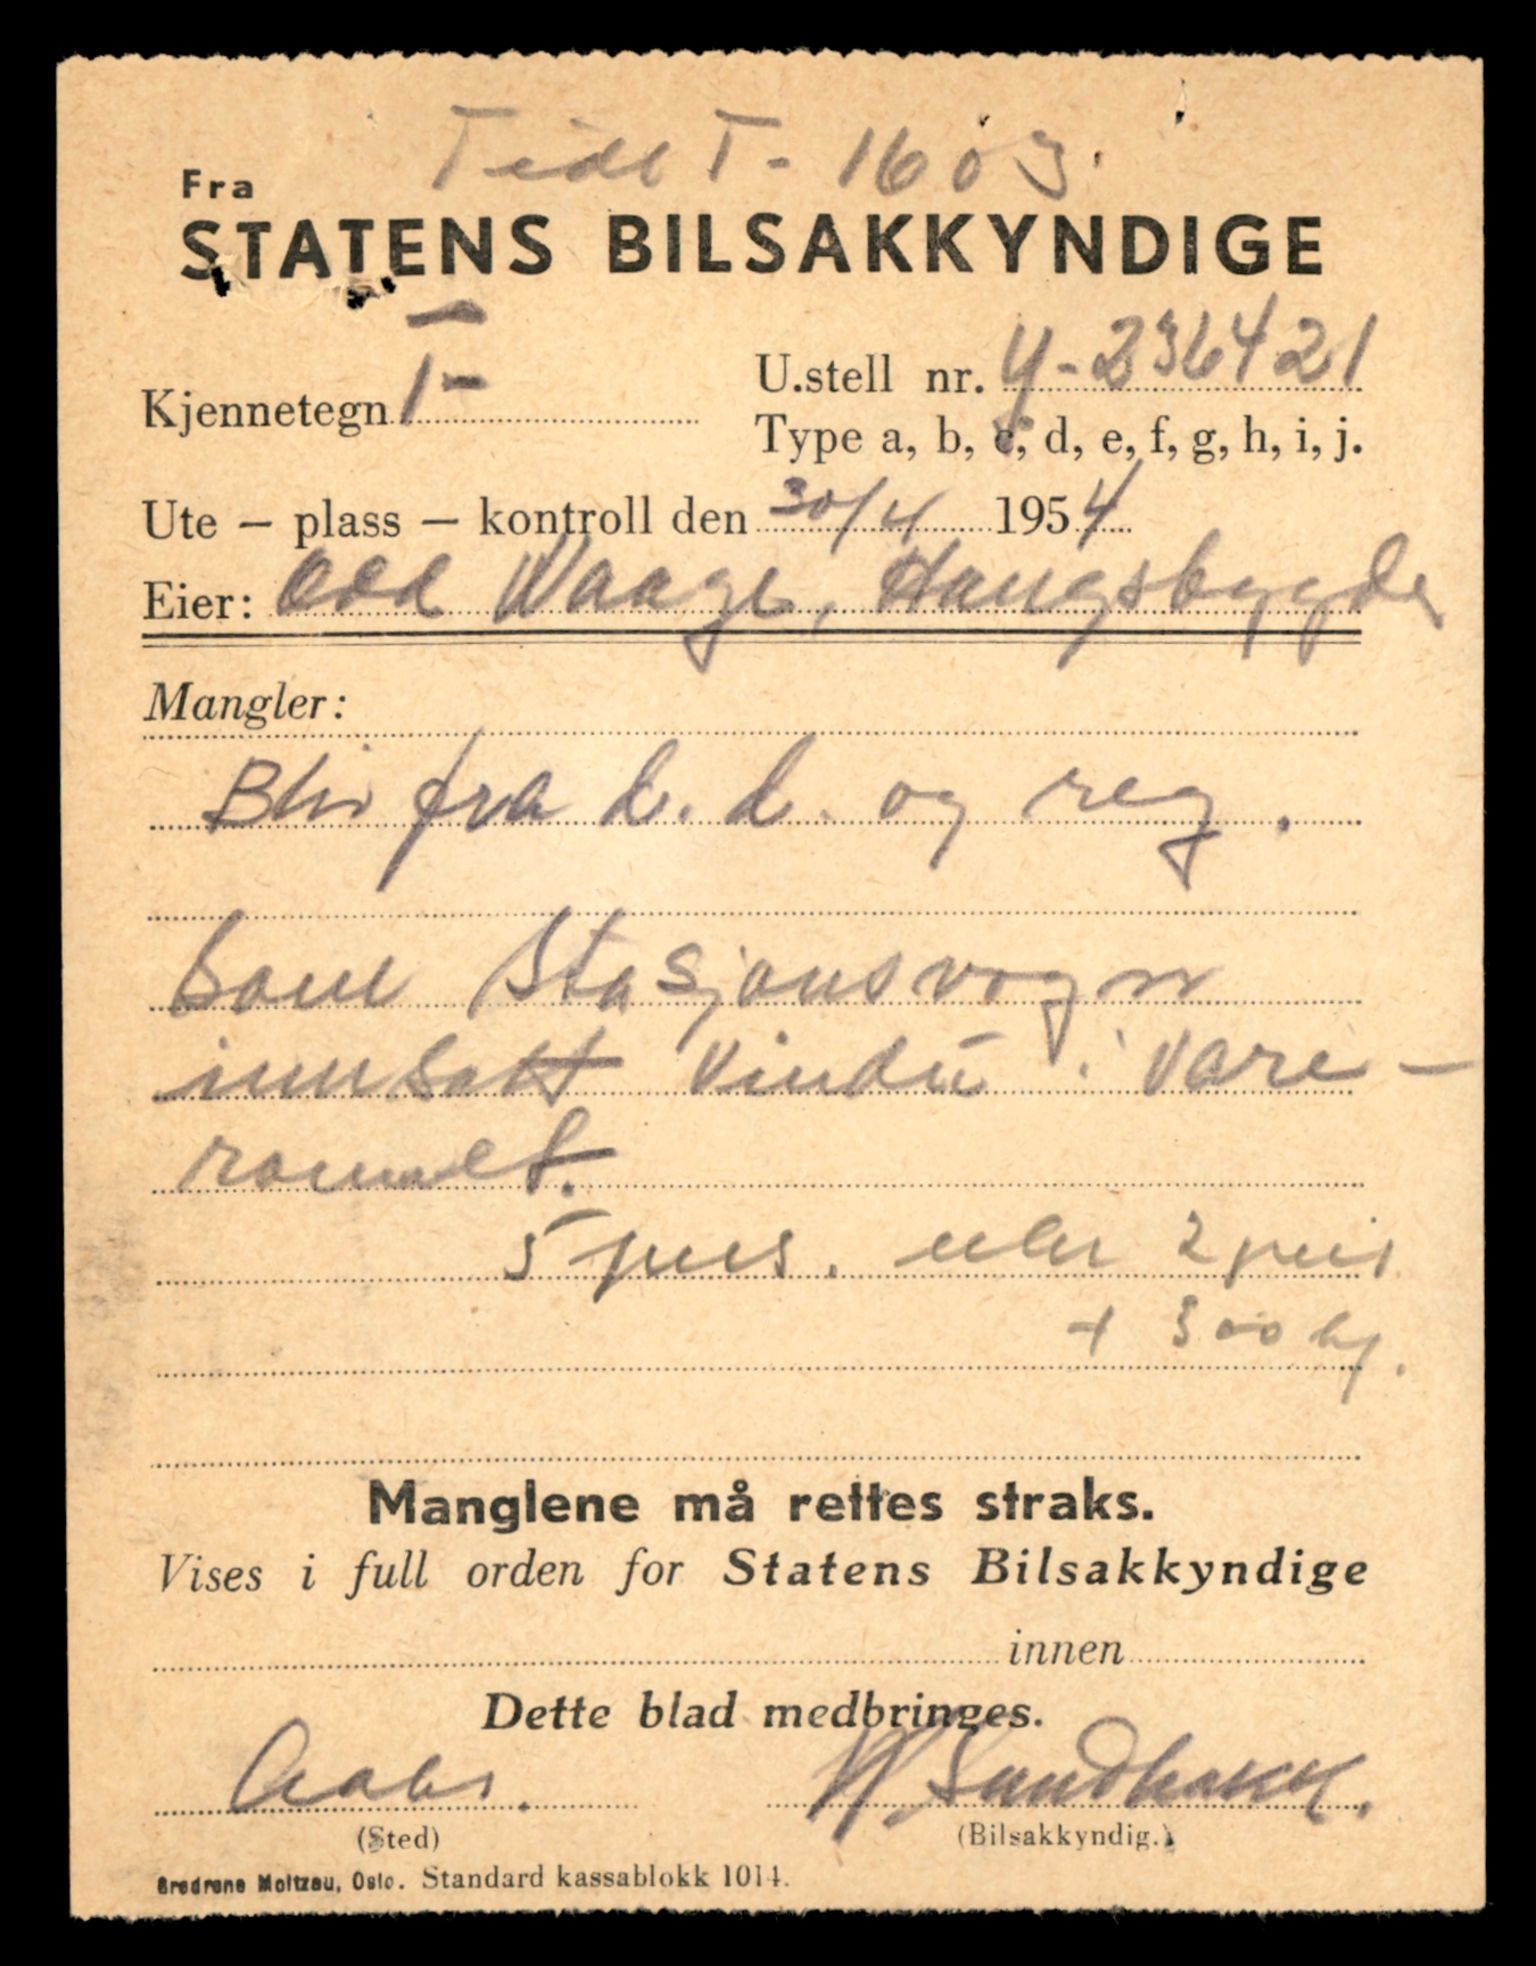 Tidl T- 1603.
Fra
STATENS BILSAKKYNDIGE
Kjennetegn T-
U.stell nr. Y-236421
Type a, b, c, d, e, f, g, h, i, j.
Ute – plass – kontroll den 30/4 1954
Eier: Odd Waage, Haugsbygda
Mangler:
Blir fra d. d. og reg.
som Stasjonsvogn
innsatt Vindu i Vare-
rommet.
5 pers. eller 2 pers
+ 300 kg.
Manglene må rettes straks.
Vises i full orden for Statens Bilsakkyndige
innen
Dette blad medbringes.
(Sted)
(Bilsakkyndig.)
Brødrene Moltzau, Oslo. Standard kassablokk 1014.